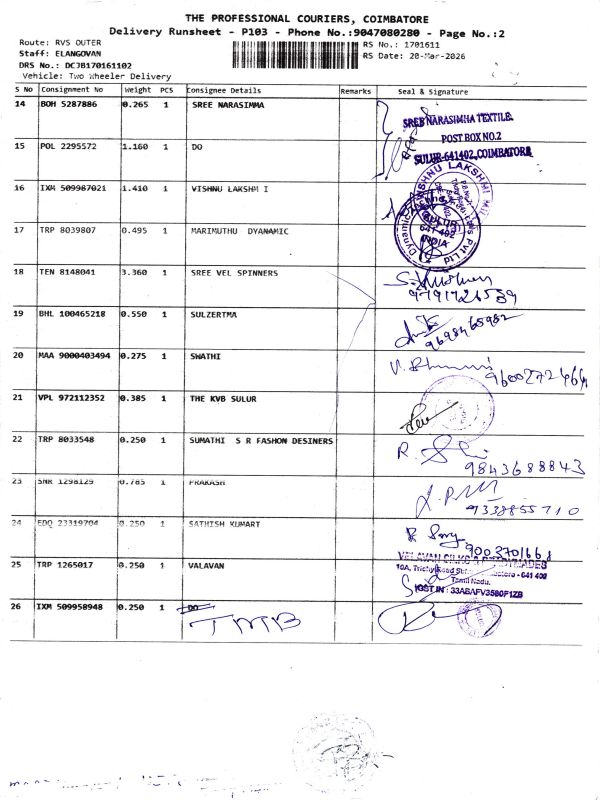 THE PROFESSIONAL COURIERS, COIMBATORE
Delivery Runsheet - P103 - Phone No.:9047080280 - Page No.:2
Route: RVS OUTER
RS No.: 1701611
Staff: ELANGOVAN
RS Date: 20-Mar-2026
DRS No.: DCJB170161102
Vehicle: Two Wheeler Delivery
S No Consignment No Weight PCS Consignee Details Remarks Seal & Signature
14 BOH 5287886 0.265 1 SREE NARASIMMA
SREE NARASIMHA TEXTILE.
POST BOX NO.2
SULUR-641402, COIMBATORE
15 POL 2295572 1.160 1 DO
16 IXM 509987021 1.410 1 VISHNU LAKSHM I
17 TRP 8039807 0.495 1 MARIMUTHU DYANAMIC
641 402
INDIA
18 TEN 8148041 3.360 1 SREE VEL SPINNERS
9791726589
19 BHL 100465218 0.550 1 SULZERTMA
9698465982
20 MAA 9000403494 0.275 1 SWATHI
9600272464
21 VPL 972112352 0.385 1 THE KVB SULUR
22 TRP 8033548 0.250 1 SUMATHI S R FASHON DESINERS
9843688843
23 SNR 1298129 0.785 1 PRAKASH
9338855710
24 EDQ 23319704 0.250 1 SATHISH KUMART
9002701668
25 TRP 1265017 0.250 1 VALAVAN
Tamil Nadu.
GSTIN: 33ABAFV3580F1ZB
26 IXM 509958948 0.250 1 DO
TMB